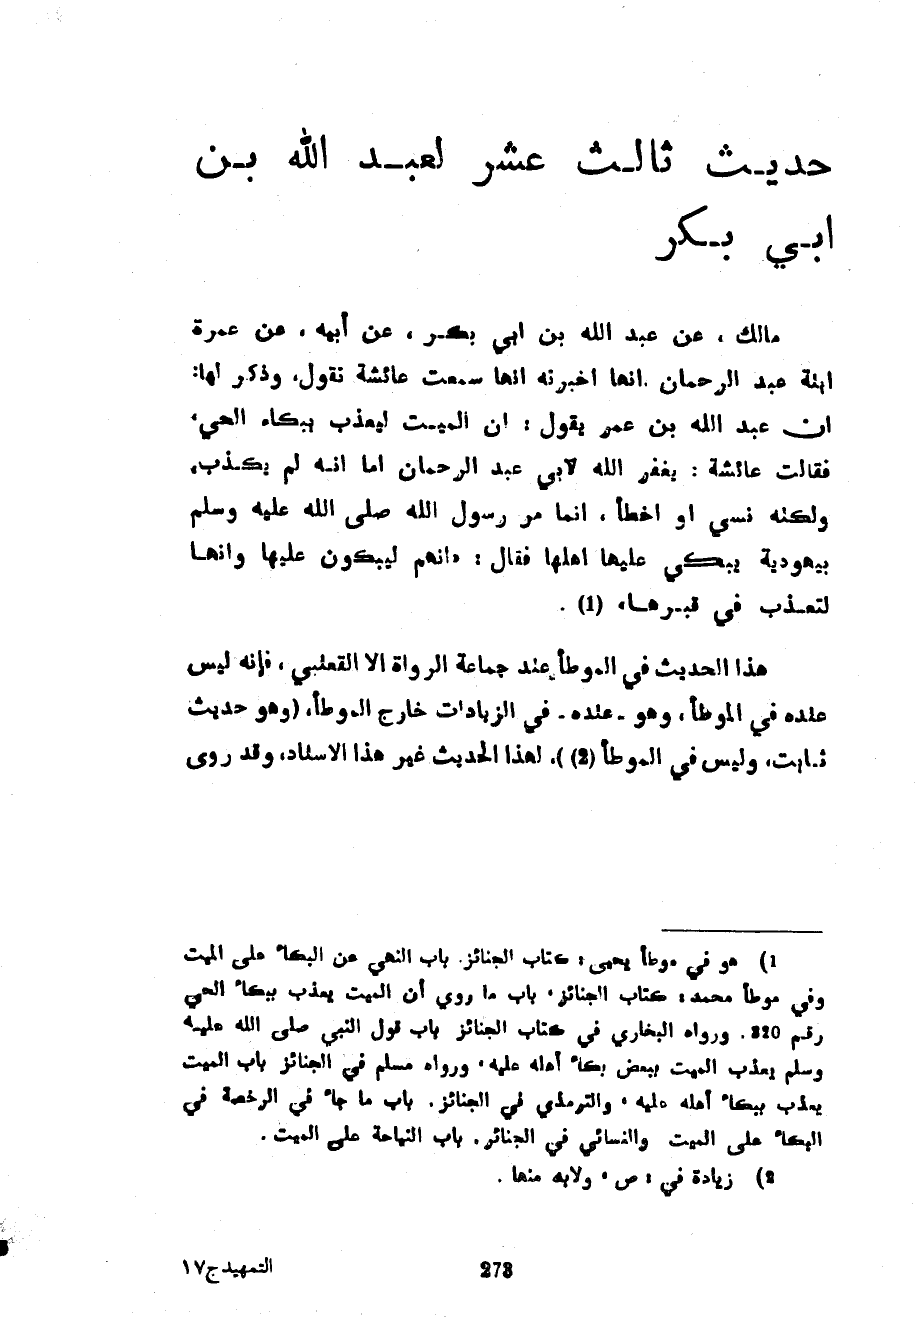 حديث ثالث عشر لعبد الله بن
ابي بكر
مالك ، عن عبد الله بن ابي بكر ، عن أبيه ، عن عمرة
ابنة عبد الرحمان .انها اخبرته انها سمعت عائشة تقول، وذكر لها:
ان عبد الله بن عمر يقول : ان الميت ليعذب ببكاء الحي،
فقالت عائشة : يغفر الله لابي عبد الرحمان اما انه لم يكذب،
ولكنه نسي او اخطأ ، انما مر رسول الله صلى الله عليه وسلم
بيهودية يبكي عليها اهلها فقال : «انهم ليبكون عليها وانها
لتعذب في قبرها» (1) .
هذا الحديث في الموطأ عند جماعة الرواة الا القعنبي ، فإنه ليس
عنده في الموطأ ، وهو ـ عنده ـ في الزيادات خارج الموطأ، (وهو حديث
ثابت، وليس في الموطأ (2) ). لهذا الحديث غير هذا الاسناد، وقد روى
1) هو في موطأ يحيى : كتاب الجنائز. باب النهي عن البكاء على الميت
وفي موطأ محمد : كتاب الجنائز، باب ما روي أن الميت يعذب ببكاء الحي
رقم 320 . ورواه البخاري في كتاب الجنائز باب قول النبي صلى الله عليه
وسلم يعذب الميت ببعض بكاء أهله عليه ، ورواه مسلم في الجنائز باب الميت
يعذب ببكاء أهله عليه ، والترمذي في الجنائز. باب ما جاء في الرخصة في
البكاء على الميت والنسائي في الجنائز. باب النياحة على الميت .
2) زيادة في : ص ، ولابد منها .
273
التمهيد ج١٧